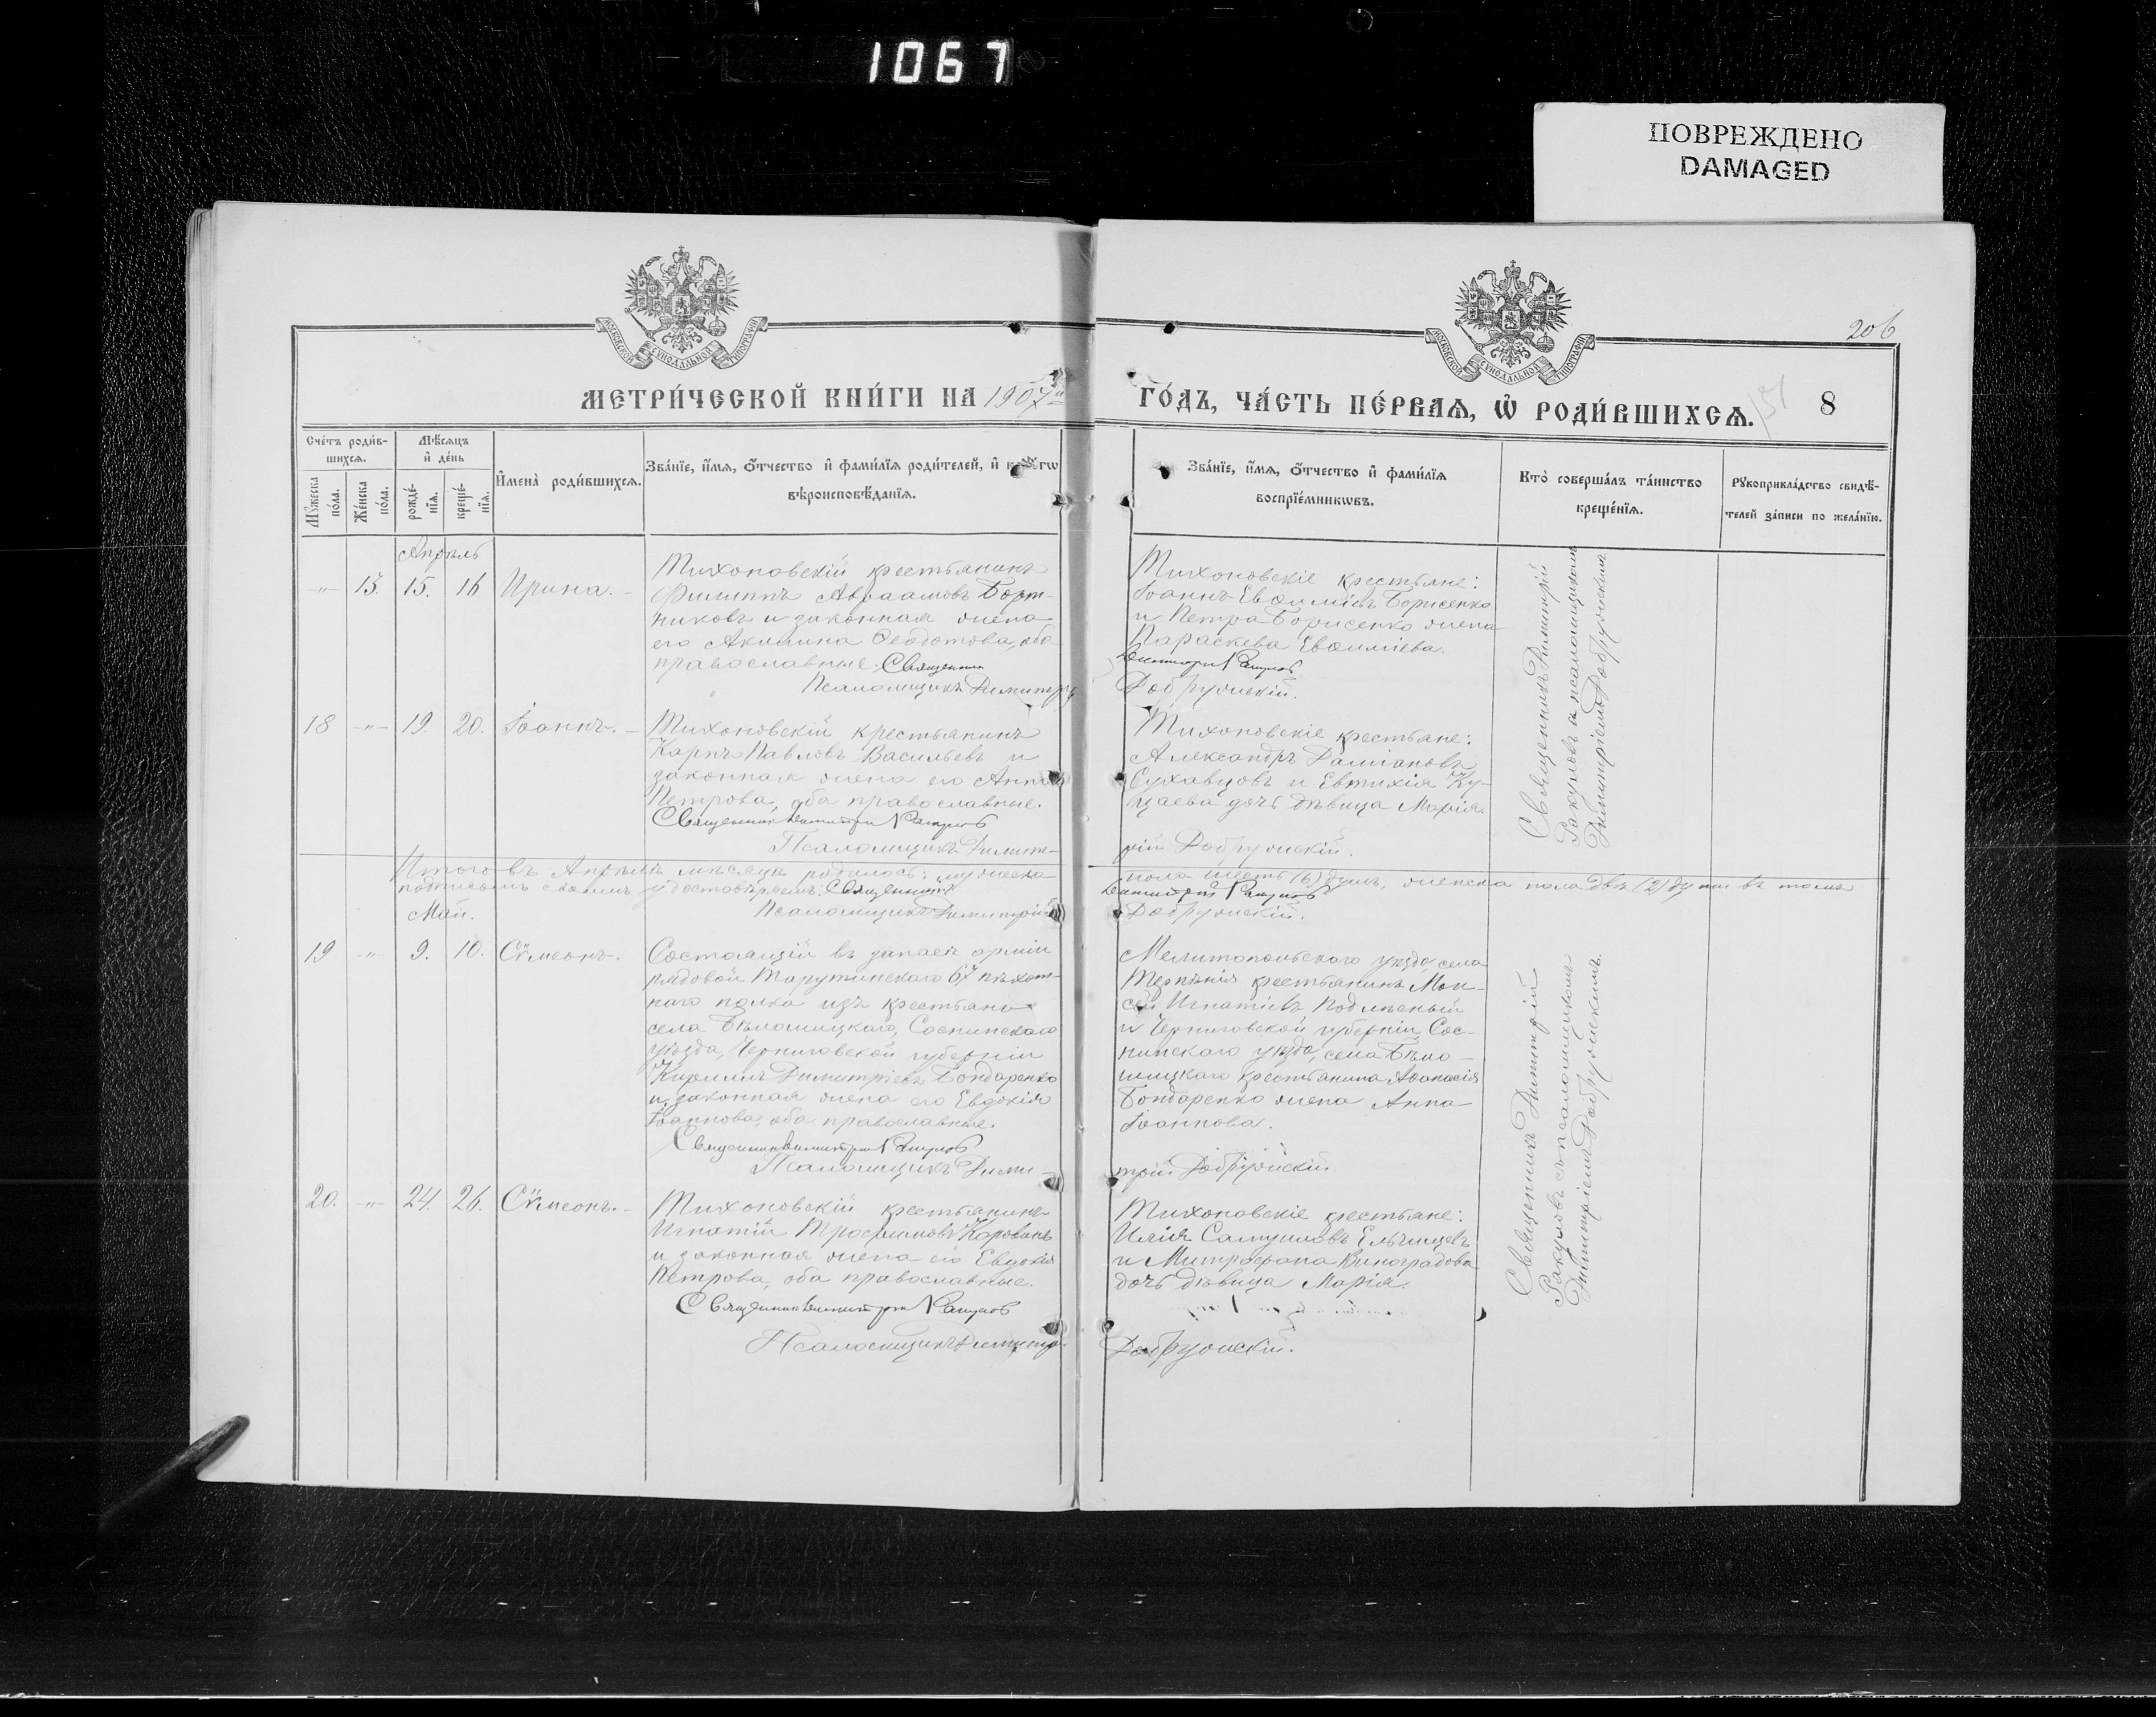 1067
ПОВРЕЖДЕНО
DAMAGED
МОСКОВСКОЙ СУНОДАЛЬНОЙ ТИПОГРАФІИ
МОСКОВСКОЙ СУНОДАЛЬНОЙ ТИПОГРАФІИ
206
МЕТРИ́ЧЕСКОЙ КНИ́ГИ НА 1907й
ГО́ДЪ, ЧА́СТЬ ПЕ́РВАѦ, Ѡ҆ РОДИ́ВШИХСѦ. 151 8
Сче́тъ роди́в-
шихсѧ.
Мѣ́сяцъ
и҆ де́нь
Мꙋ́жеска по́ла.
Же́нска по́ла.
рожде́-
нїѧ.
креще́-
нїѧ.
И҆мена̀ роди́вшихсѧ.
Зва́нїе, и҆́мѧ, ѻ҆́тчество и҆ фами́лїѧ роди́телей, и҆
вѣроисповѣ́данїѧ.
Зва́нїе, и҆́мѧ, ѻ҆́тчество и҆ фами́лїѧ
воспрїе́мникѡвъ.
Кто̀ соверша́лъ та́инство
креще́нїѧ.
Рꙋкоприкла́дство свидѣ́-
телей за́писи по жела́нїю.
Апрѣль
-"- 13. 15. 16 Ирина.
Тихоновскій крестьянинъ
Филиппъ Авраамовъ Борт-
никовъ и законная жена
его Акилина Ѳеодотова, оба
православные. Священник
Псаломщикъ Димитрій
Тихоновскіе крестьяне:
Іоаннъ Евѳиміевъ Борисенко
и Петра Борисенко жена
Параскева Евѳиміева.
Димитрій Ракулов
Добружскій.
Священникъ Димитрій
Ракуловъ и псаломщикомъ
Димитріемъ Добружскимъ
18 -"- 19. 20. Іоаннъ.
Тихоновскій крестьянинъ
Карпъ Павловъ Васильевъ и
законная жена его Анна
Петрова, оба православные.
Священник Димитрій Ракулов
Псаломщикъ Димит-
Тихоновскіе крестьяне:
Александръ Даміановъ
Сухавцовъ и Евтихія Ку-
цаева дочь дѣвица Марія.
рій Добружскій.
Итого въ Апрѣлѣ мѣсяцѣ родилось: мужеска
пола шесть (6) душъ, женска пола двѣ (2) души въ томъ
подписомъ своимъ удостовѣряемъ: Священникъ
Димитрій Ракулов
Псаломщикъ Димитрій
Добружскій.
Май.
19 -"- 9. 10. Сѵмеонъ.
Состоящій въ запасѣ арміи
рядовой Тарутинскаго 67 пѣхот-
наго полка изъ крестьянъ
села Бѣлошицкаго, Сосницкаго
уѣзда, Черниговской губерніи
Кириллъ Димитріевъ Бондаренко
и законная жена его Евдокія
Іоаннова, оба православные.
Священник Димитрій Ракулов
Псаломщикъ Дими-
Мелитопольскаго уѣзда, села
Терпѣнія крестьянинъ Мои-
сей Игнатіевъ
и Черниговской губерніи Сос-
ницкаго уѣзда, села Бѣло-
шицкаго крестьянина Аѳанасія
Бондаренко жена Анна
Іоаннова.
трій Добружскій.
Священникъ Димитрій
Ракуловъ съ псаломщикомъ
Димитріемъ Добружскимъ.
20. -"- 24. 26. Сѵмеонъ.
Тихоновскій крестьянинъ
Игнатій Трофимовъ Коровинъ
и законная жена его Евдокія
Петрова, оба православные.
Священник Димитрій Ракулов
Псаломщикъ Димитр.
Тихоновскіе крестьяне:
Илія Самуиловъ Ельчищевъ
и Митрофана Виноградова
дочь дѣвица Марія.
Добружскій.